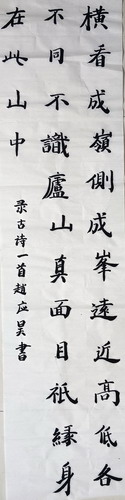 橫看成嶺側成峯遠近高低各
不同不識廬山真面目祇緣身
在此山中
录古诗一首趙应昊書